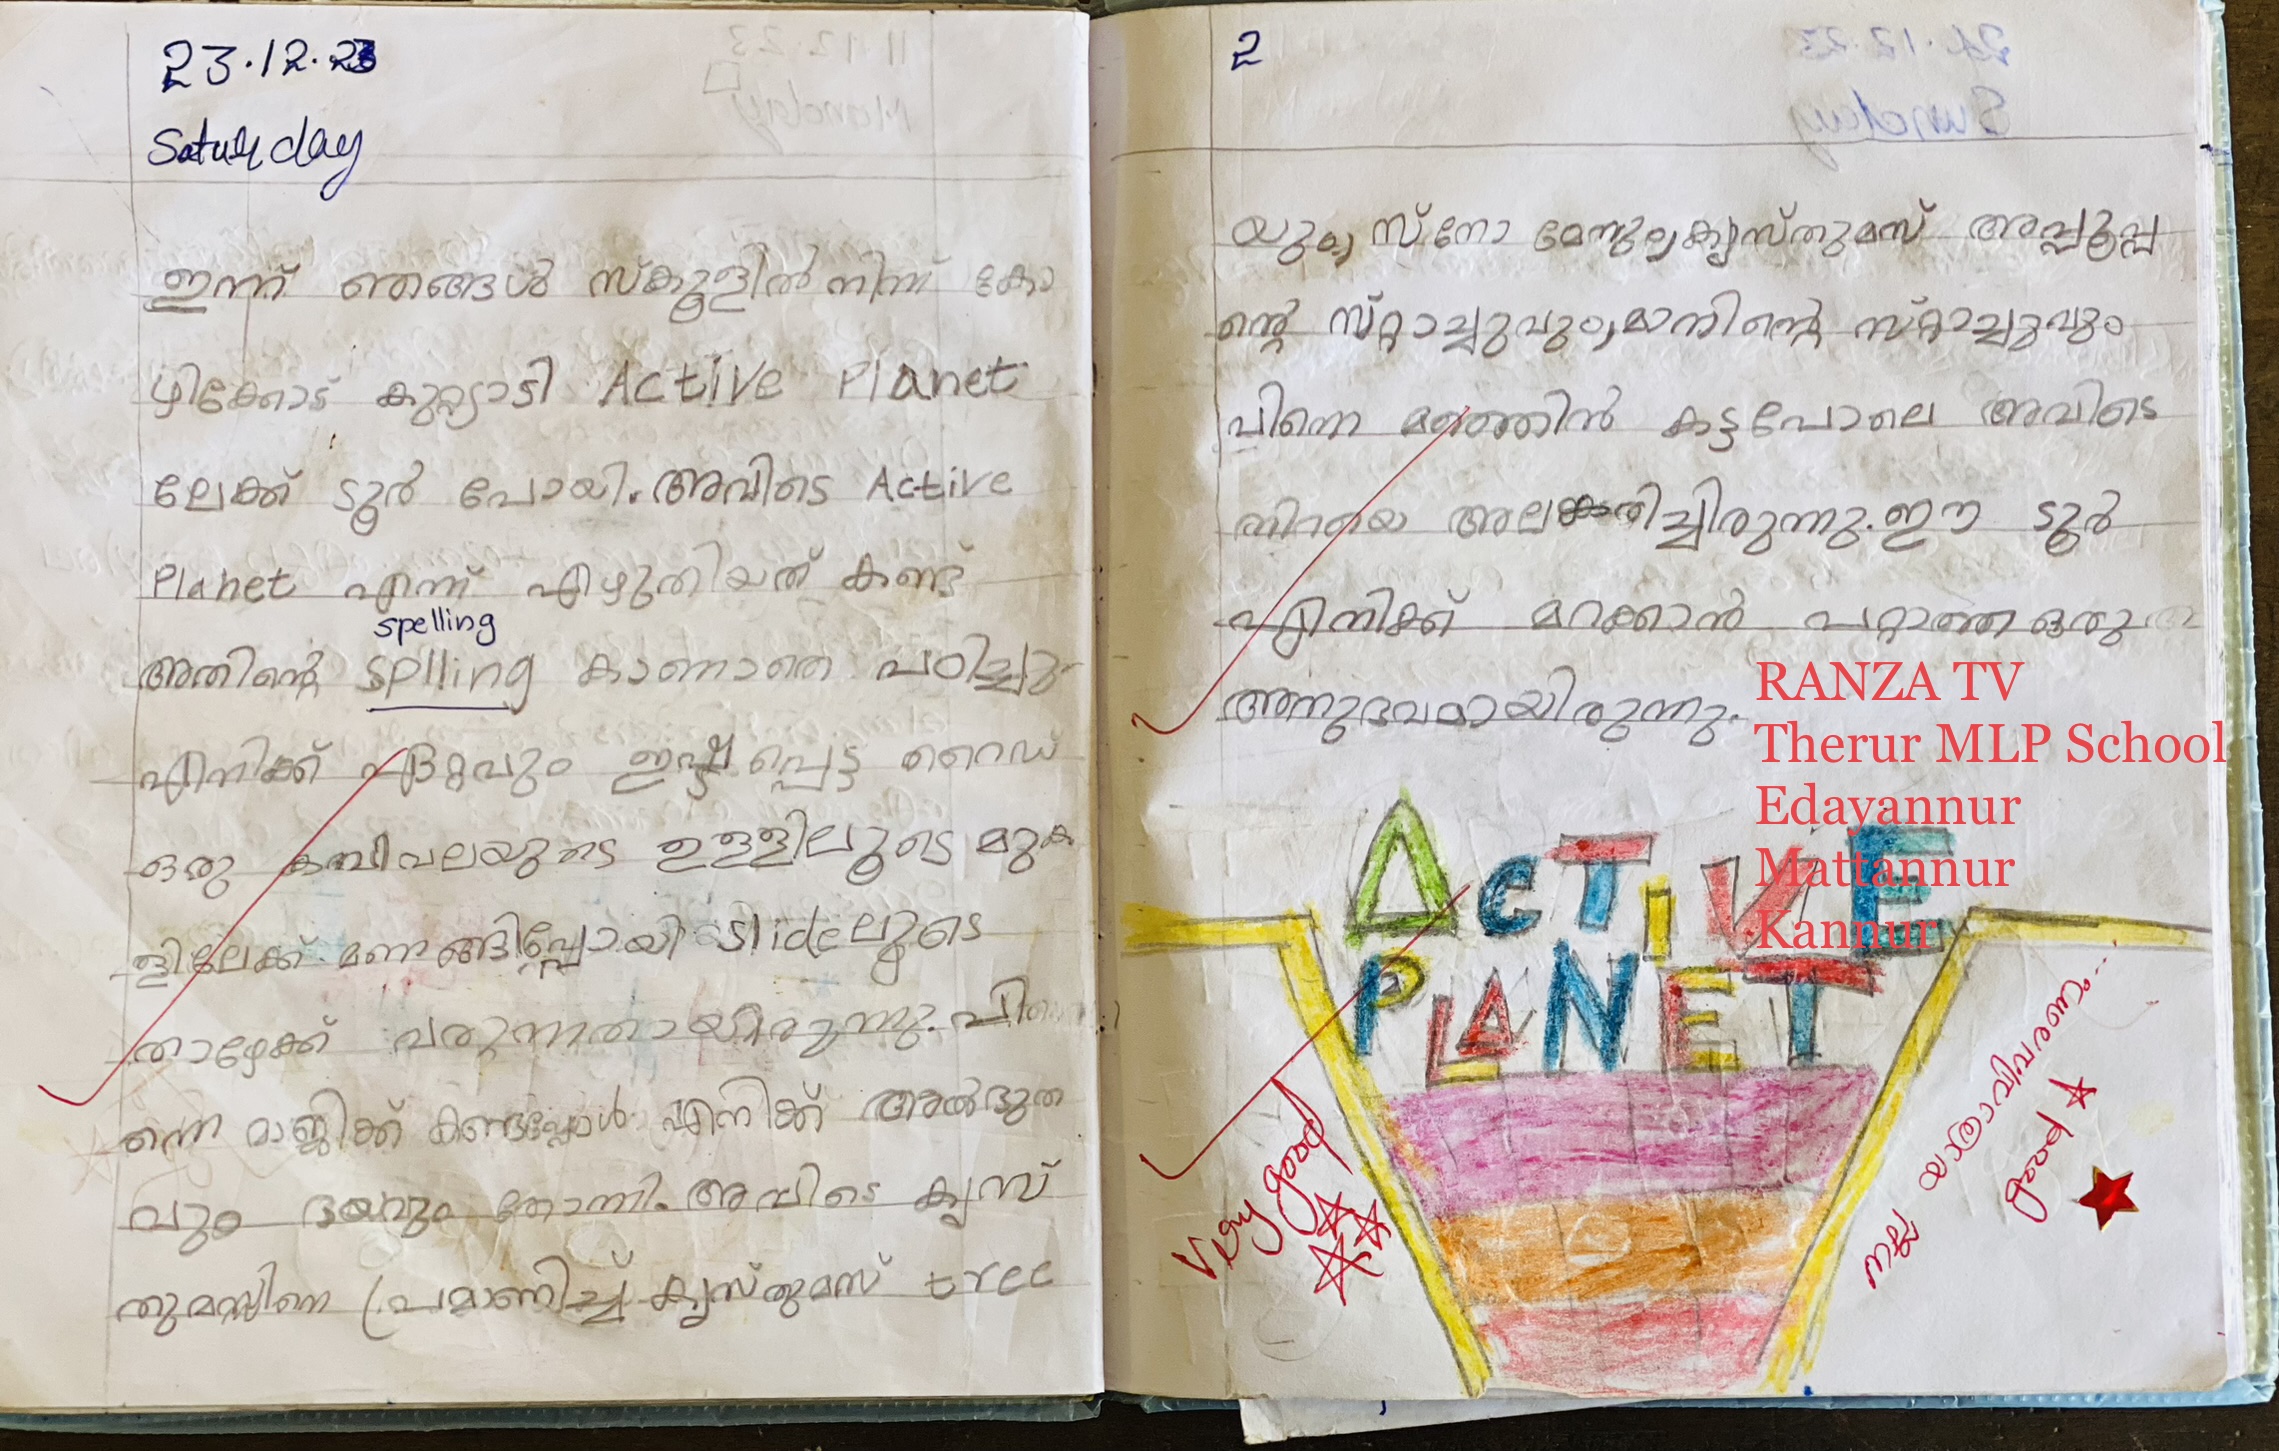 23.12.23
Saturday
ഇന്ന് ഞങ്ങൾ സ്കൂളിൽ നിന്ന് കോ
ഴിക്കോട് കുറ്റ്യാടി Active Planet
ലേക്ക് ടൂർ പോയി. അവിടെ Active
Planet എന്ന് എഴുതിയത് കണ്ട്
spelling
അതിന്റെ splling കാണാതെ പഠിച്ചു.
എനിക്ക് ഏറ്റവും ഇഷ്ടപ്പെട്ട റൈഡ്
ഒരു കമ്പിവലയുടെ ഉള്ളിലൂടെ മുക
ളിലേക്ക് slideലൂടെ
താഴേക്ക് വരുന്നതായിരുന്നു.
ന്നെ മാജിക്ക് കണ്ടപ്പോൾ എനിക്ക് അൽഭുത
വും ഭയവും തോന്നി. അവിടെ ക്യസ്
തുമസ്സിനെ പ്രമാണിച്ച് ക്യസ്തുമസ് tree
2
യും, സ്നോ മേനും, ക്യസ്തുമസ് അപ്പൂപ്പ
ന്റെ സ്റ്റാച്ചുവും, മാനിന്റെ സ്റ്റാച്ചുവും
പിന്നെ മഞ്ഞിൻ കട്ടപോലെ അവിടെ
നിറയെ അലങ്കരിച്ചിരുന്നു. ഈ ടൂർ
എനിക്ക് മറക്കാൻ പറ്റാത്ത ഒരു
അനുഭവമായിരുന്നു.
RANZA TV
Therur MLP School
Edayannur
Mattannur
Kannur
ACTiVE
PLANET
Very good
നല്ല യാത്രാവിവരണം...
good